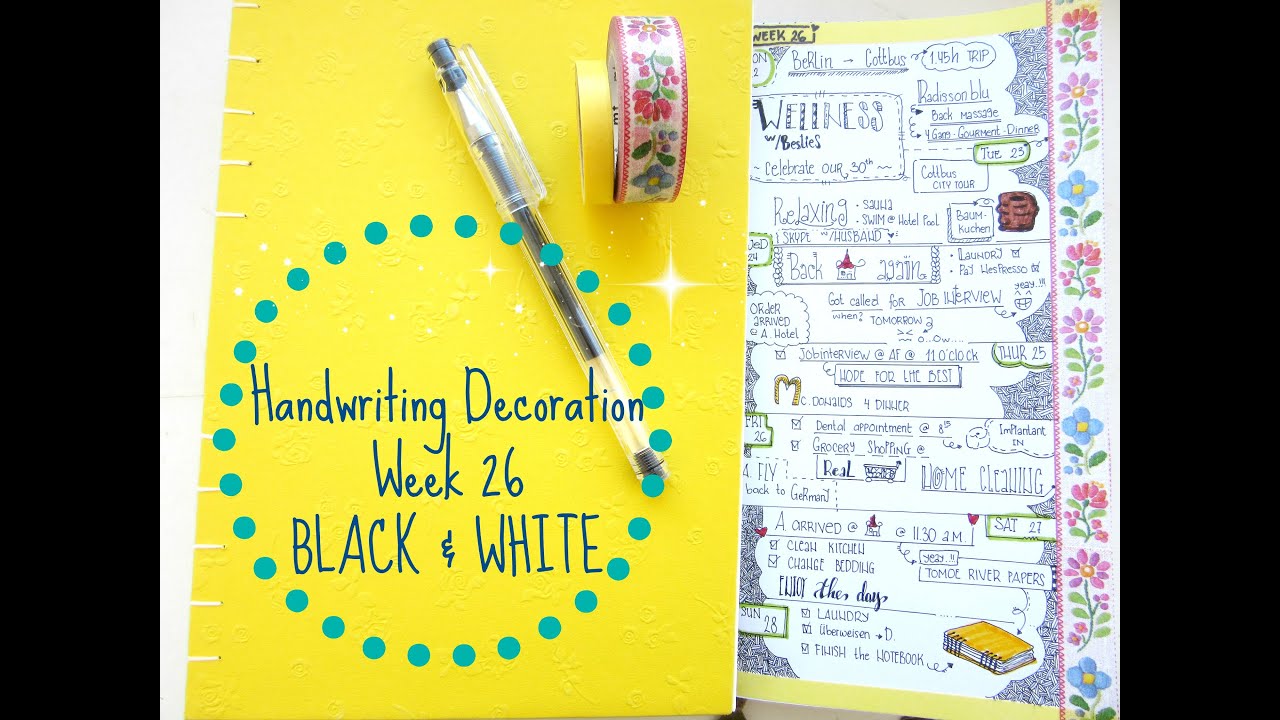 Handwriting Decoration
Week 26
BLACK & WHITE
mt
WEEK 26
Berlin → Cottbus
1.45h TRIP
WELLNESS
w/Besties
~ Celebrate our 30th ~
Radisson blu
Back massage
4 Gang-Gourment-Dinner
TUE 23
Cottbus
CITY TOUR
Relaxing
- SAUNA
- SWIM @ Hotel Pool
SKYPE w/HUSBAND
BAUM-
Kuchen
WED
24
Back again
• LAUNDRY
• PAY NESPRESSO
yeay..!!!
Got called for JOB INTERVIEW
when? TOMORROW
ORDER
ARRIVED
@ A. Hotel
Jobinterview @ AF @ 11 O'clock
THUR 25
HOPE FOR THE BEST
Mc. DONALDS 4 DINNER
FRI
26
Dental appointment @ 8
Implantant
IN
Grocery Shopping @
Real
HOME CLEANING
A. FLY
back to Germany
A. ARRIVED @ @ 11.30 A.M.
SAT 27
CLEAN KITCHEN
CHANGE BEDDING
yeay..!!
TOMOE RIVER PAPERS
ENJOY the days
SUN
28
LAUNDRY
Überweisen → D.
FINISH the NOTEBOOK